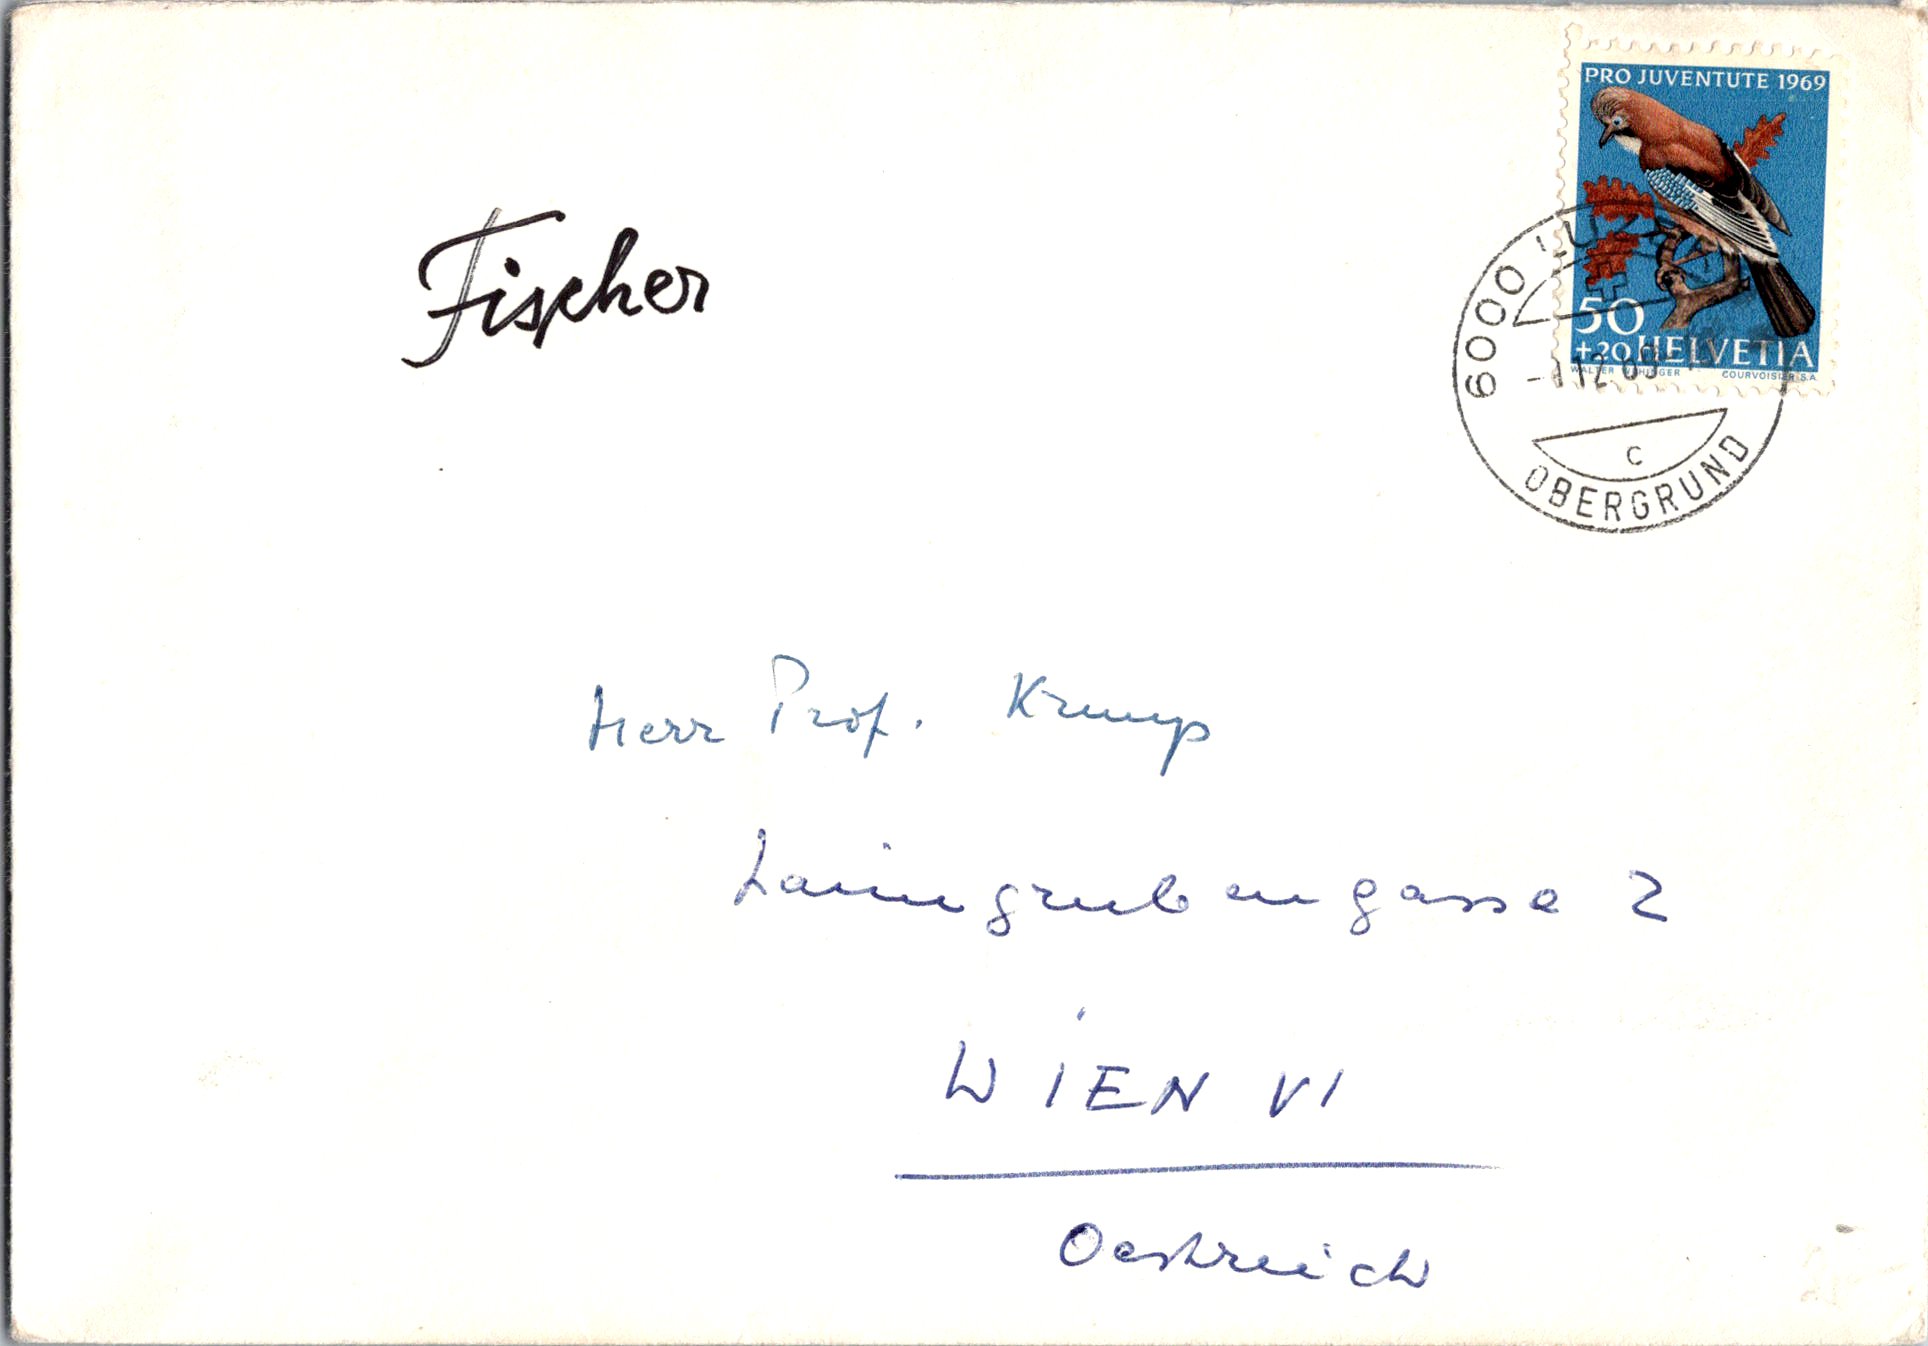 PRO JUVENTUTE 1969
50
+20 HELVETIA
WALTER WEHINGER COURVOISIER S.A.
6000 LUZERN
-1.12.69
C
OBERGRUND
Fischer
Herr Prof. Krump
Laimgrubengasse 2
WIEN VI
Oestreich